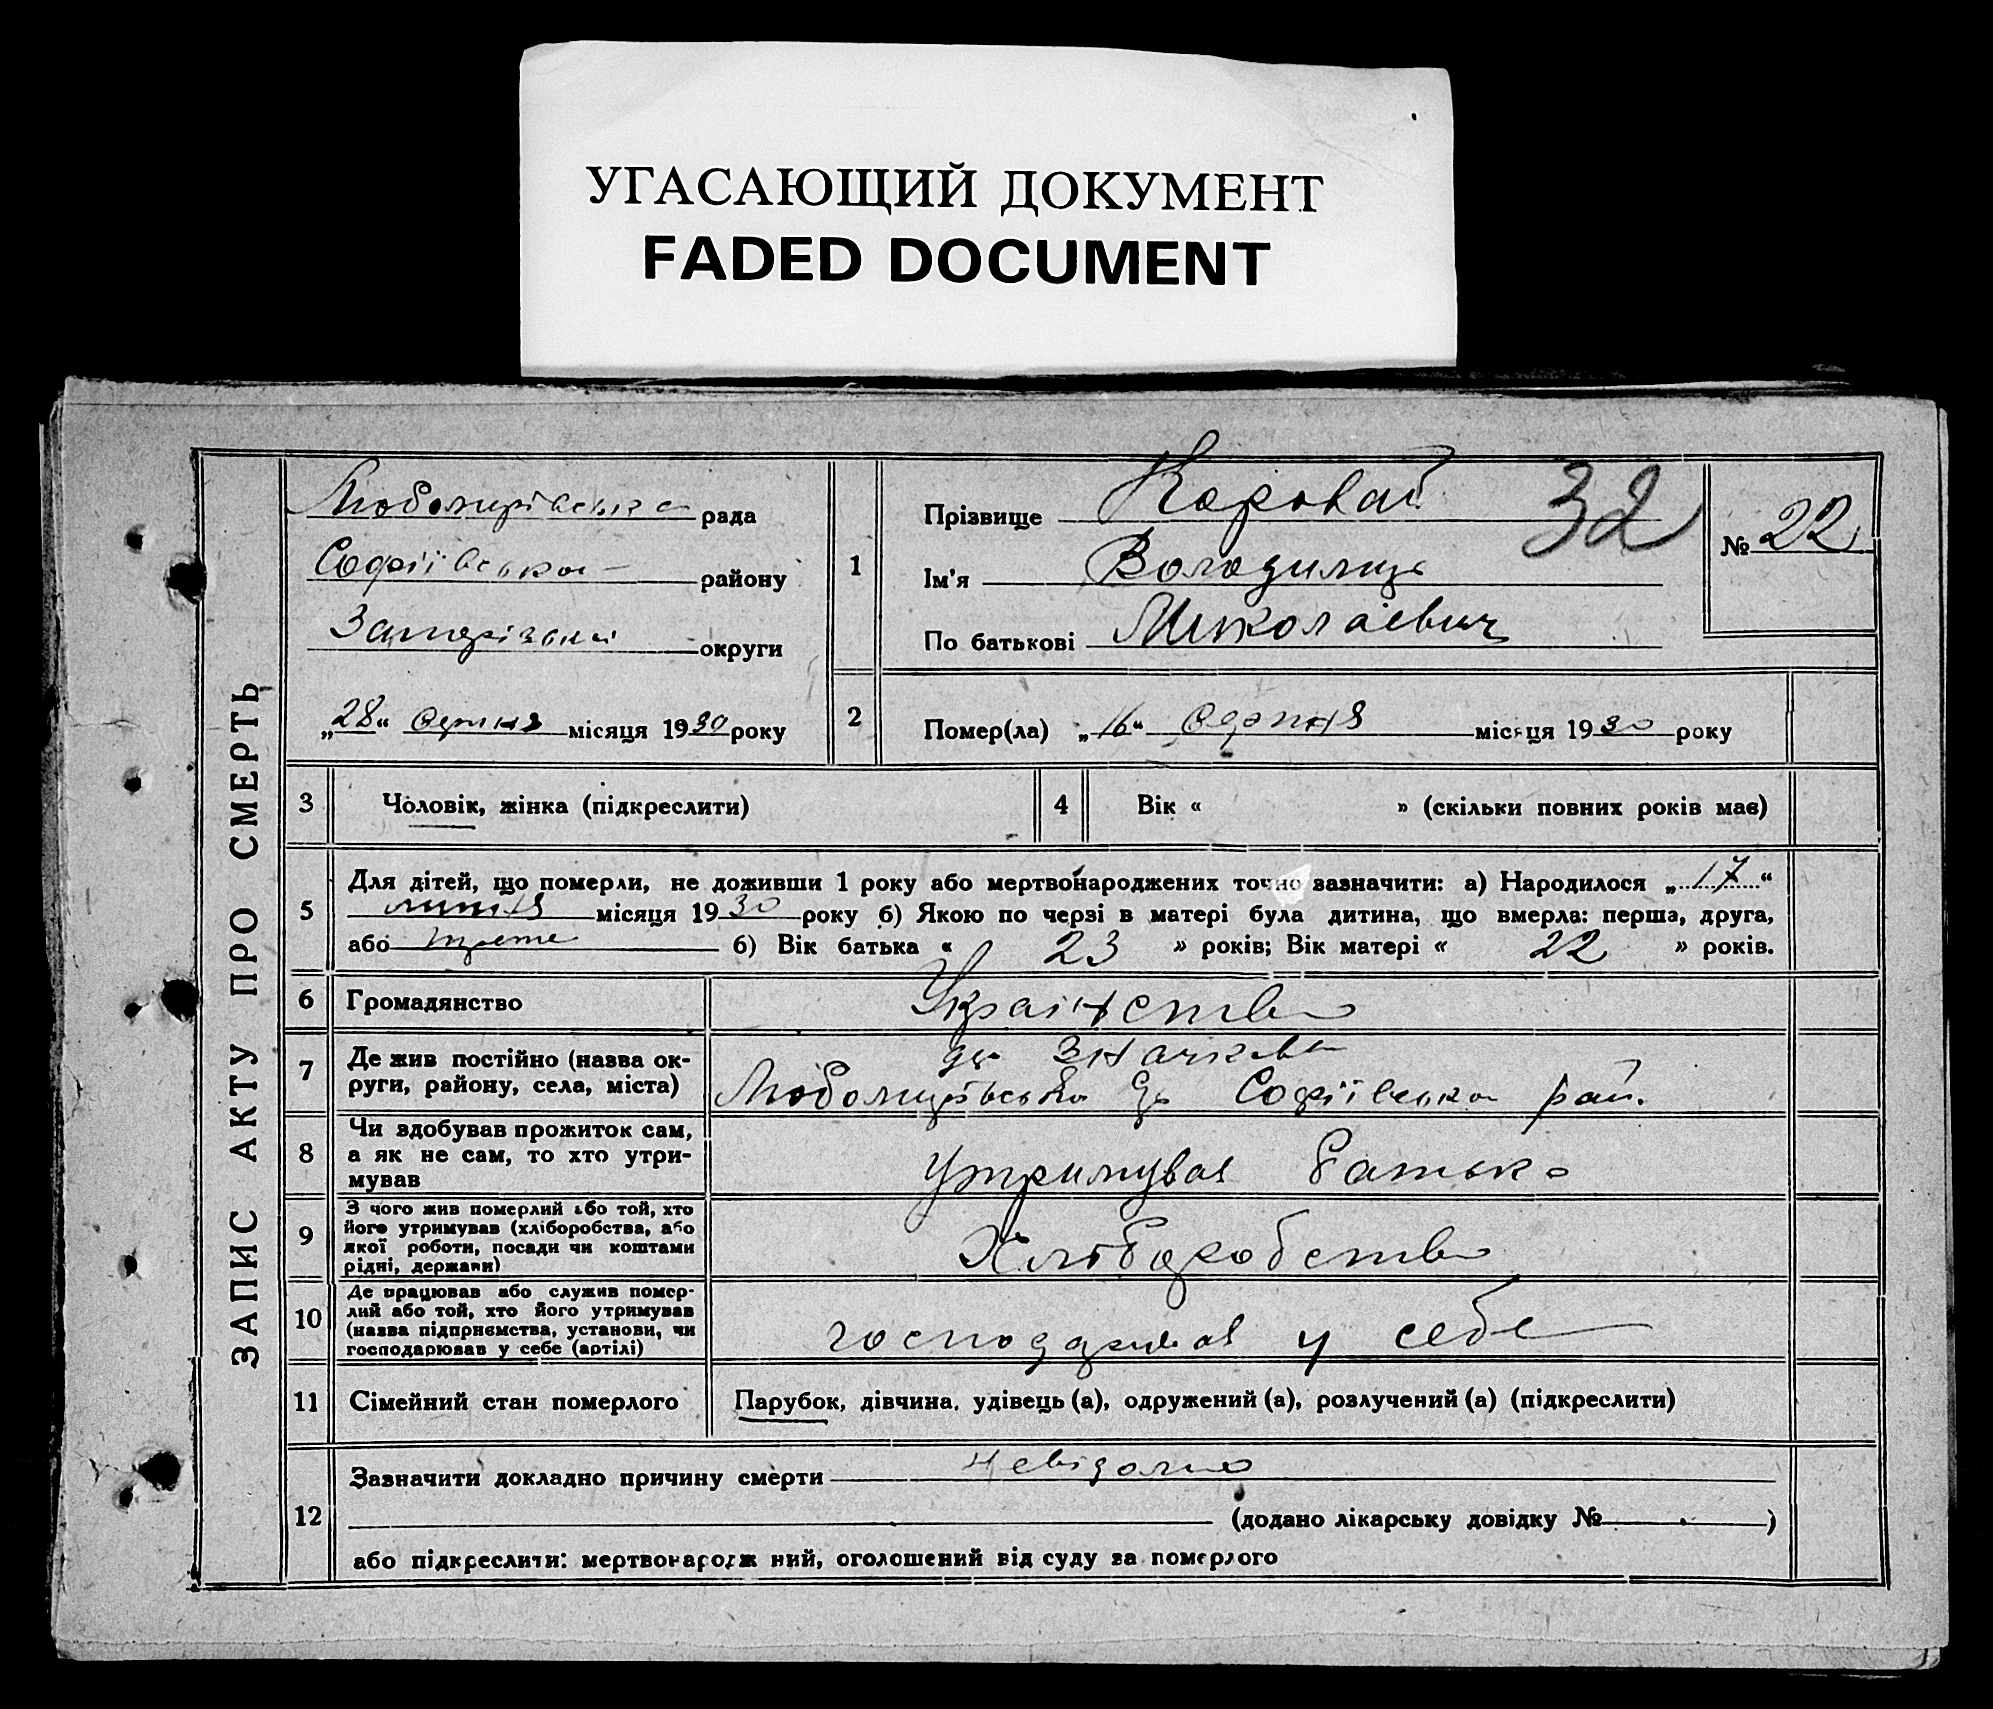 УГАСАЮЩИЙ ДОКУМЕНТ
FADED DOCUMENT
ЗАПИС АКТУ ПРО СМЕРТЬ
Любомирівська рада
Софіївська району
Запорізької округи
„28“ серпня місяця 1930 року
1
Прізвище Коровай 32
Ім’я Володимир
По батькові Миколаєвич
№ 22
2 Помер(ла) „16“ серпня місяця 1930 року
3 Чоловік, жінка (підкреслити)
4 Вік « » (скільки повних років мав)
5 Для дітей, що померли, не доживши 1 року або мертвонароджених точно зазначити: а) Народилося „17“
липня місяця 1930 року б) Якою по черзі в матері була дитина, що вмерла: перша, друга,
або трете б) Вік батька « 23 » років; Вік матері « 22 » років.
6 Громадянство Українство
7 Де жив постійно (назва ок-
руги, району, села, міста)
Любомирівська Софіївська рай.
8 Чи здобував прожиток сам,
а як не сам, то хто утри-
мував
утримував батько
9 З чого жив померлий або той, хто
його утримував (хліборобства, або
якої роботи, посади чи коштами
рідні, держави)
Хліборобство
10 Де працював або служив помер-
лий або той, хто його утримував
(назва підприємства, установи, чи
господарював у себе (артілі)
господарював у себе
11 Сімейний стан померлого Парубок, дівчина, удівець (а), одружений (а), розлучений (а) (підкреслити)
12 Зазначити докладно причину смерти невідомо
(додано лікарську довідку № )
або підкреслити: мертвонародж ний, оголошений від суду за померлого